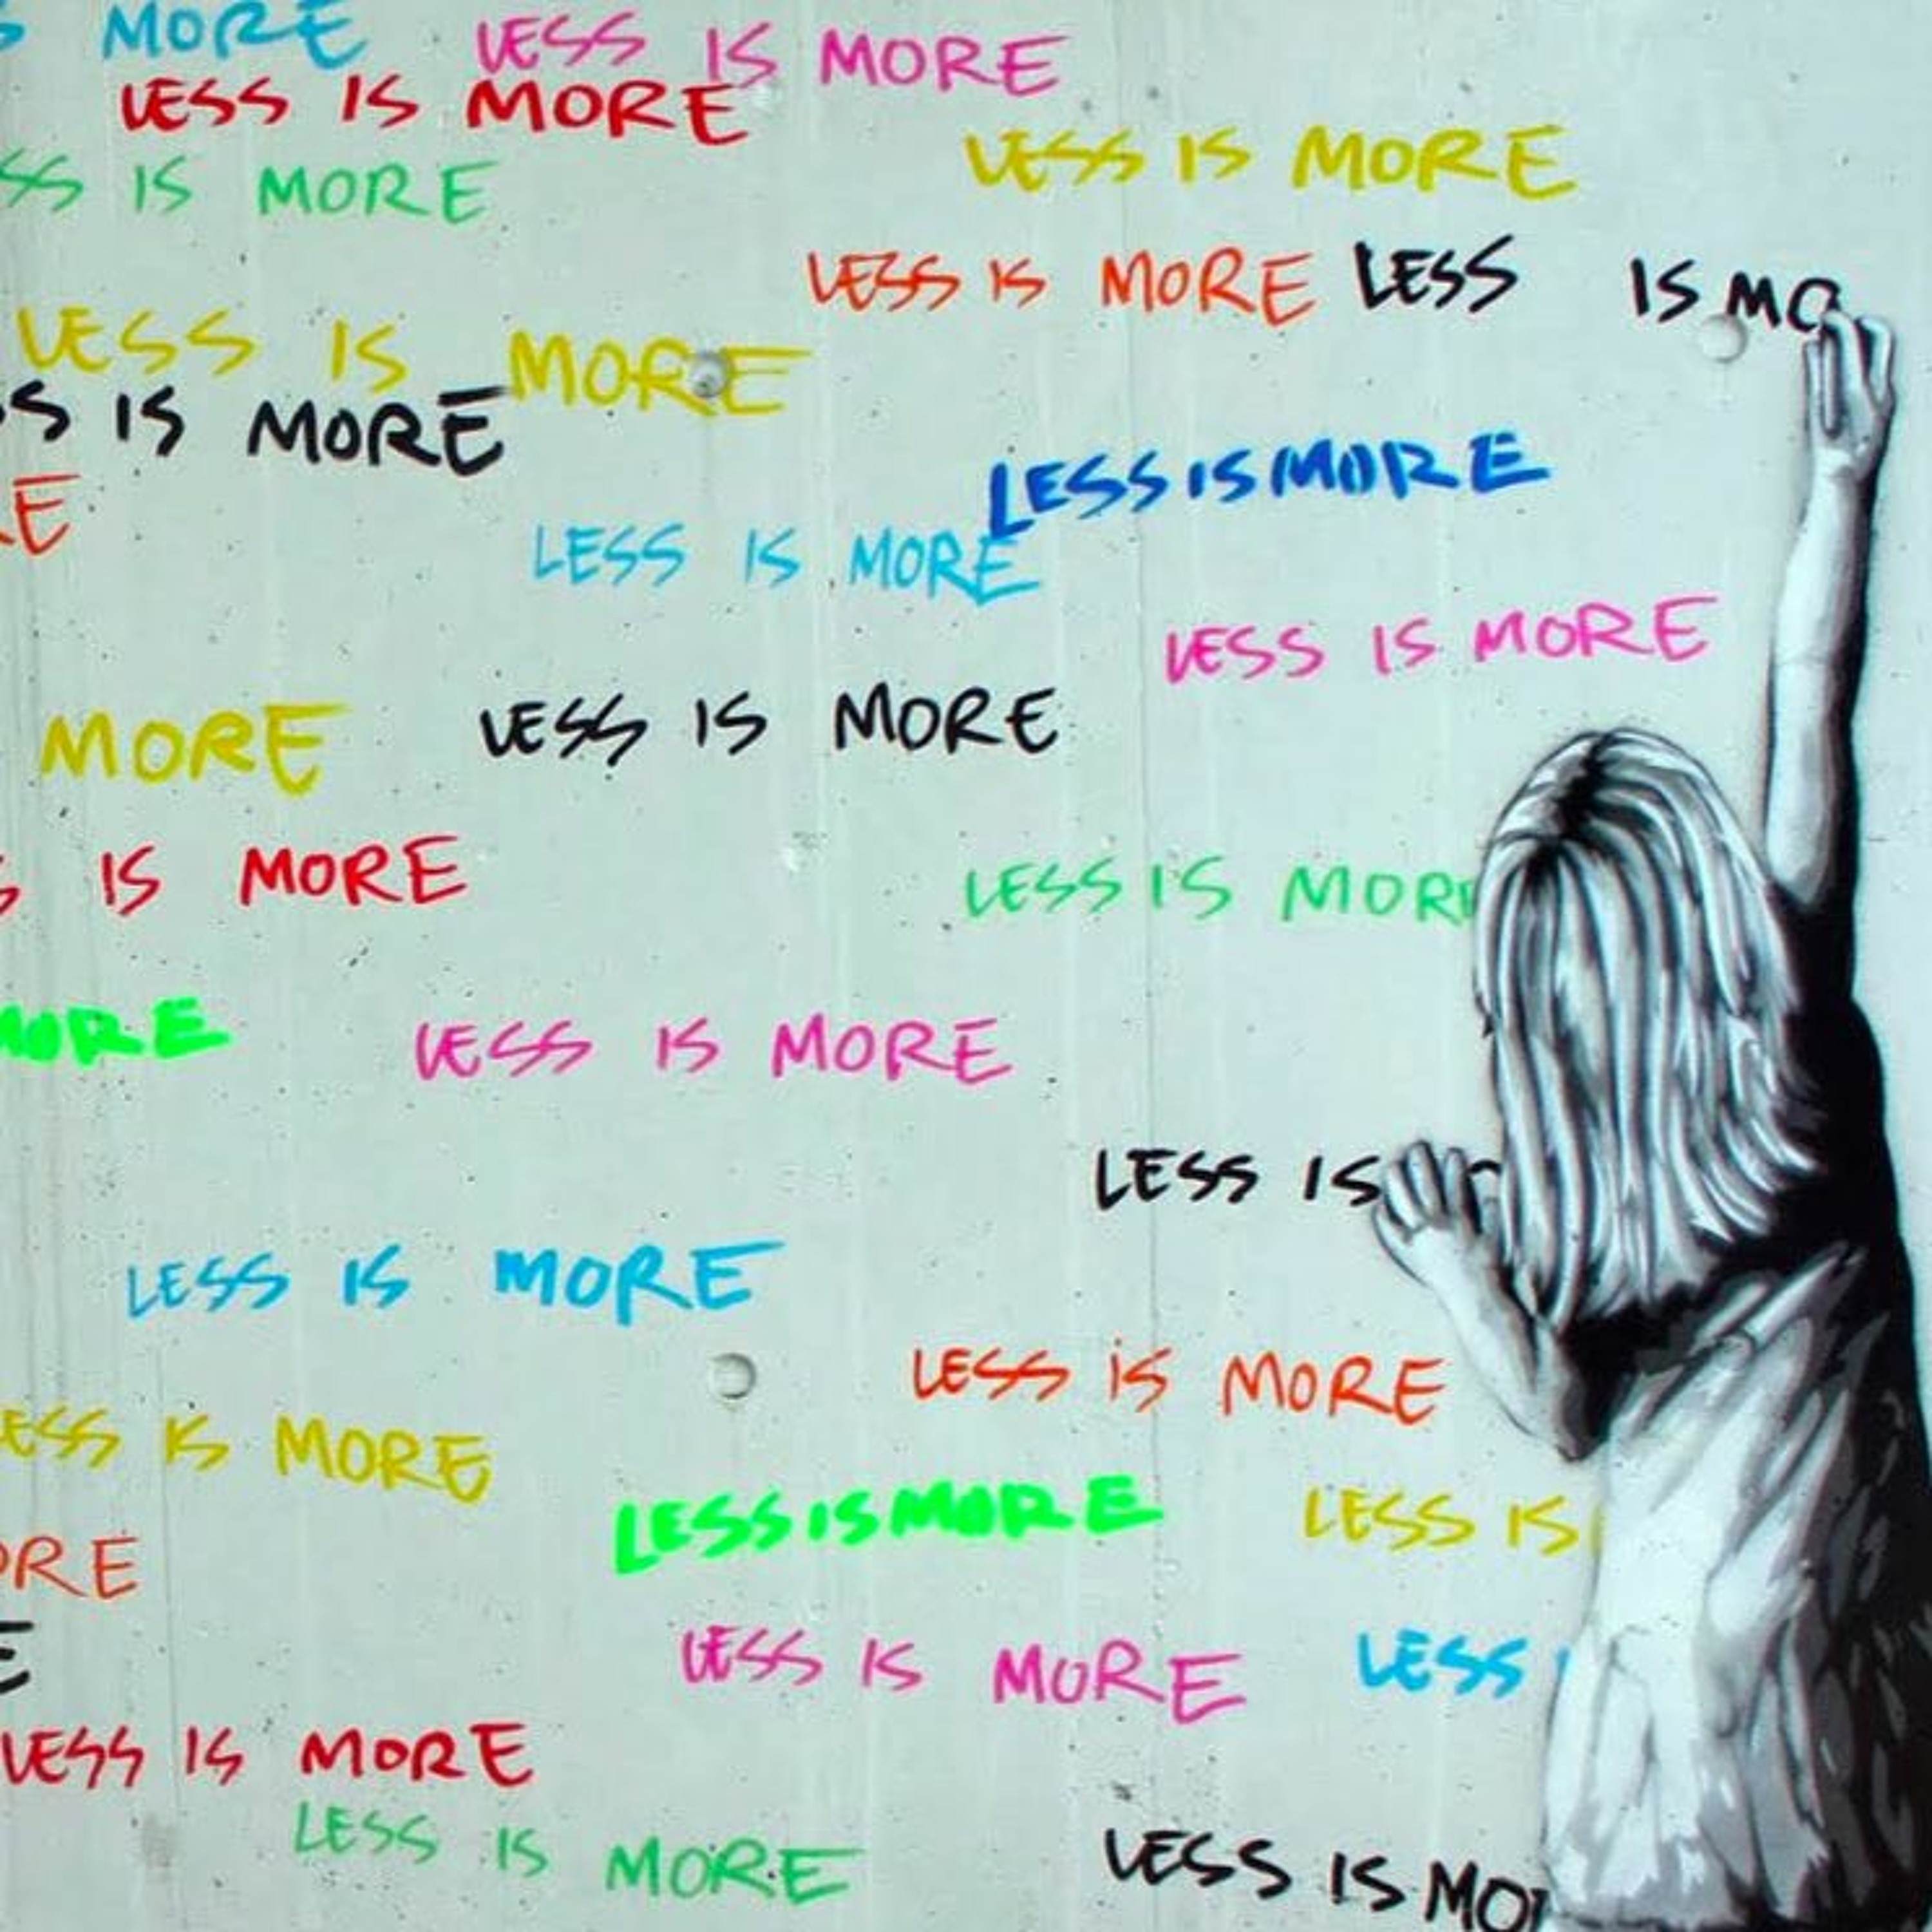 MORE LESS IS MORE
LESS IS MORE
LESS IS MORE
IS MORE
LESS IS MORE LESS IS MO
LESS IS MORE
IS MORE
LESS IS MORE
LESS IS MORE
LESS IS MORE
MORE LESS IS MORE
IS MORE
LESS IS MOR
MORE LESS IS MORE
LESS IS
LESS IS MORE
LESS IS MORE
ESS IS MORE
LESS IS MORE LESS IS
ORE
LESS IS MORE LESS
LESS IS MORE
LESS IS MORE
LESS IS MO